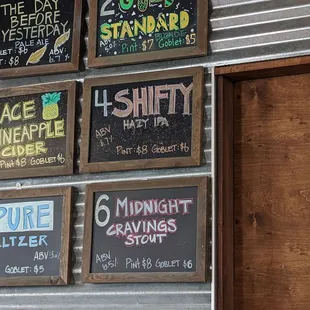 THE DAY
BEFORE
YESTERDAY
PALE ALE
STANDARD
PINT $7 GOBLET $5
ACE
PINEAPPLE
CIDER
PINT $8 GOBLET $6
4 SHIFTY
HAZY IPA
ABV
PINT: $8 GOBLET: $6
PURE
LTZER
GOBLET $5
ABV
6 MIDNIGHT
CRAVINGS
STOUT
ABV
PINT $8 GOBLET $6